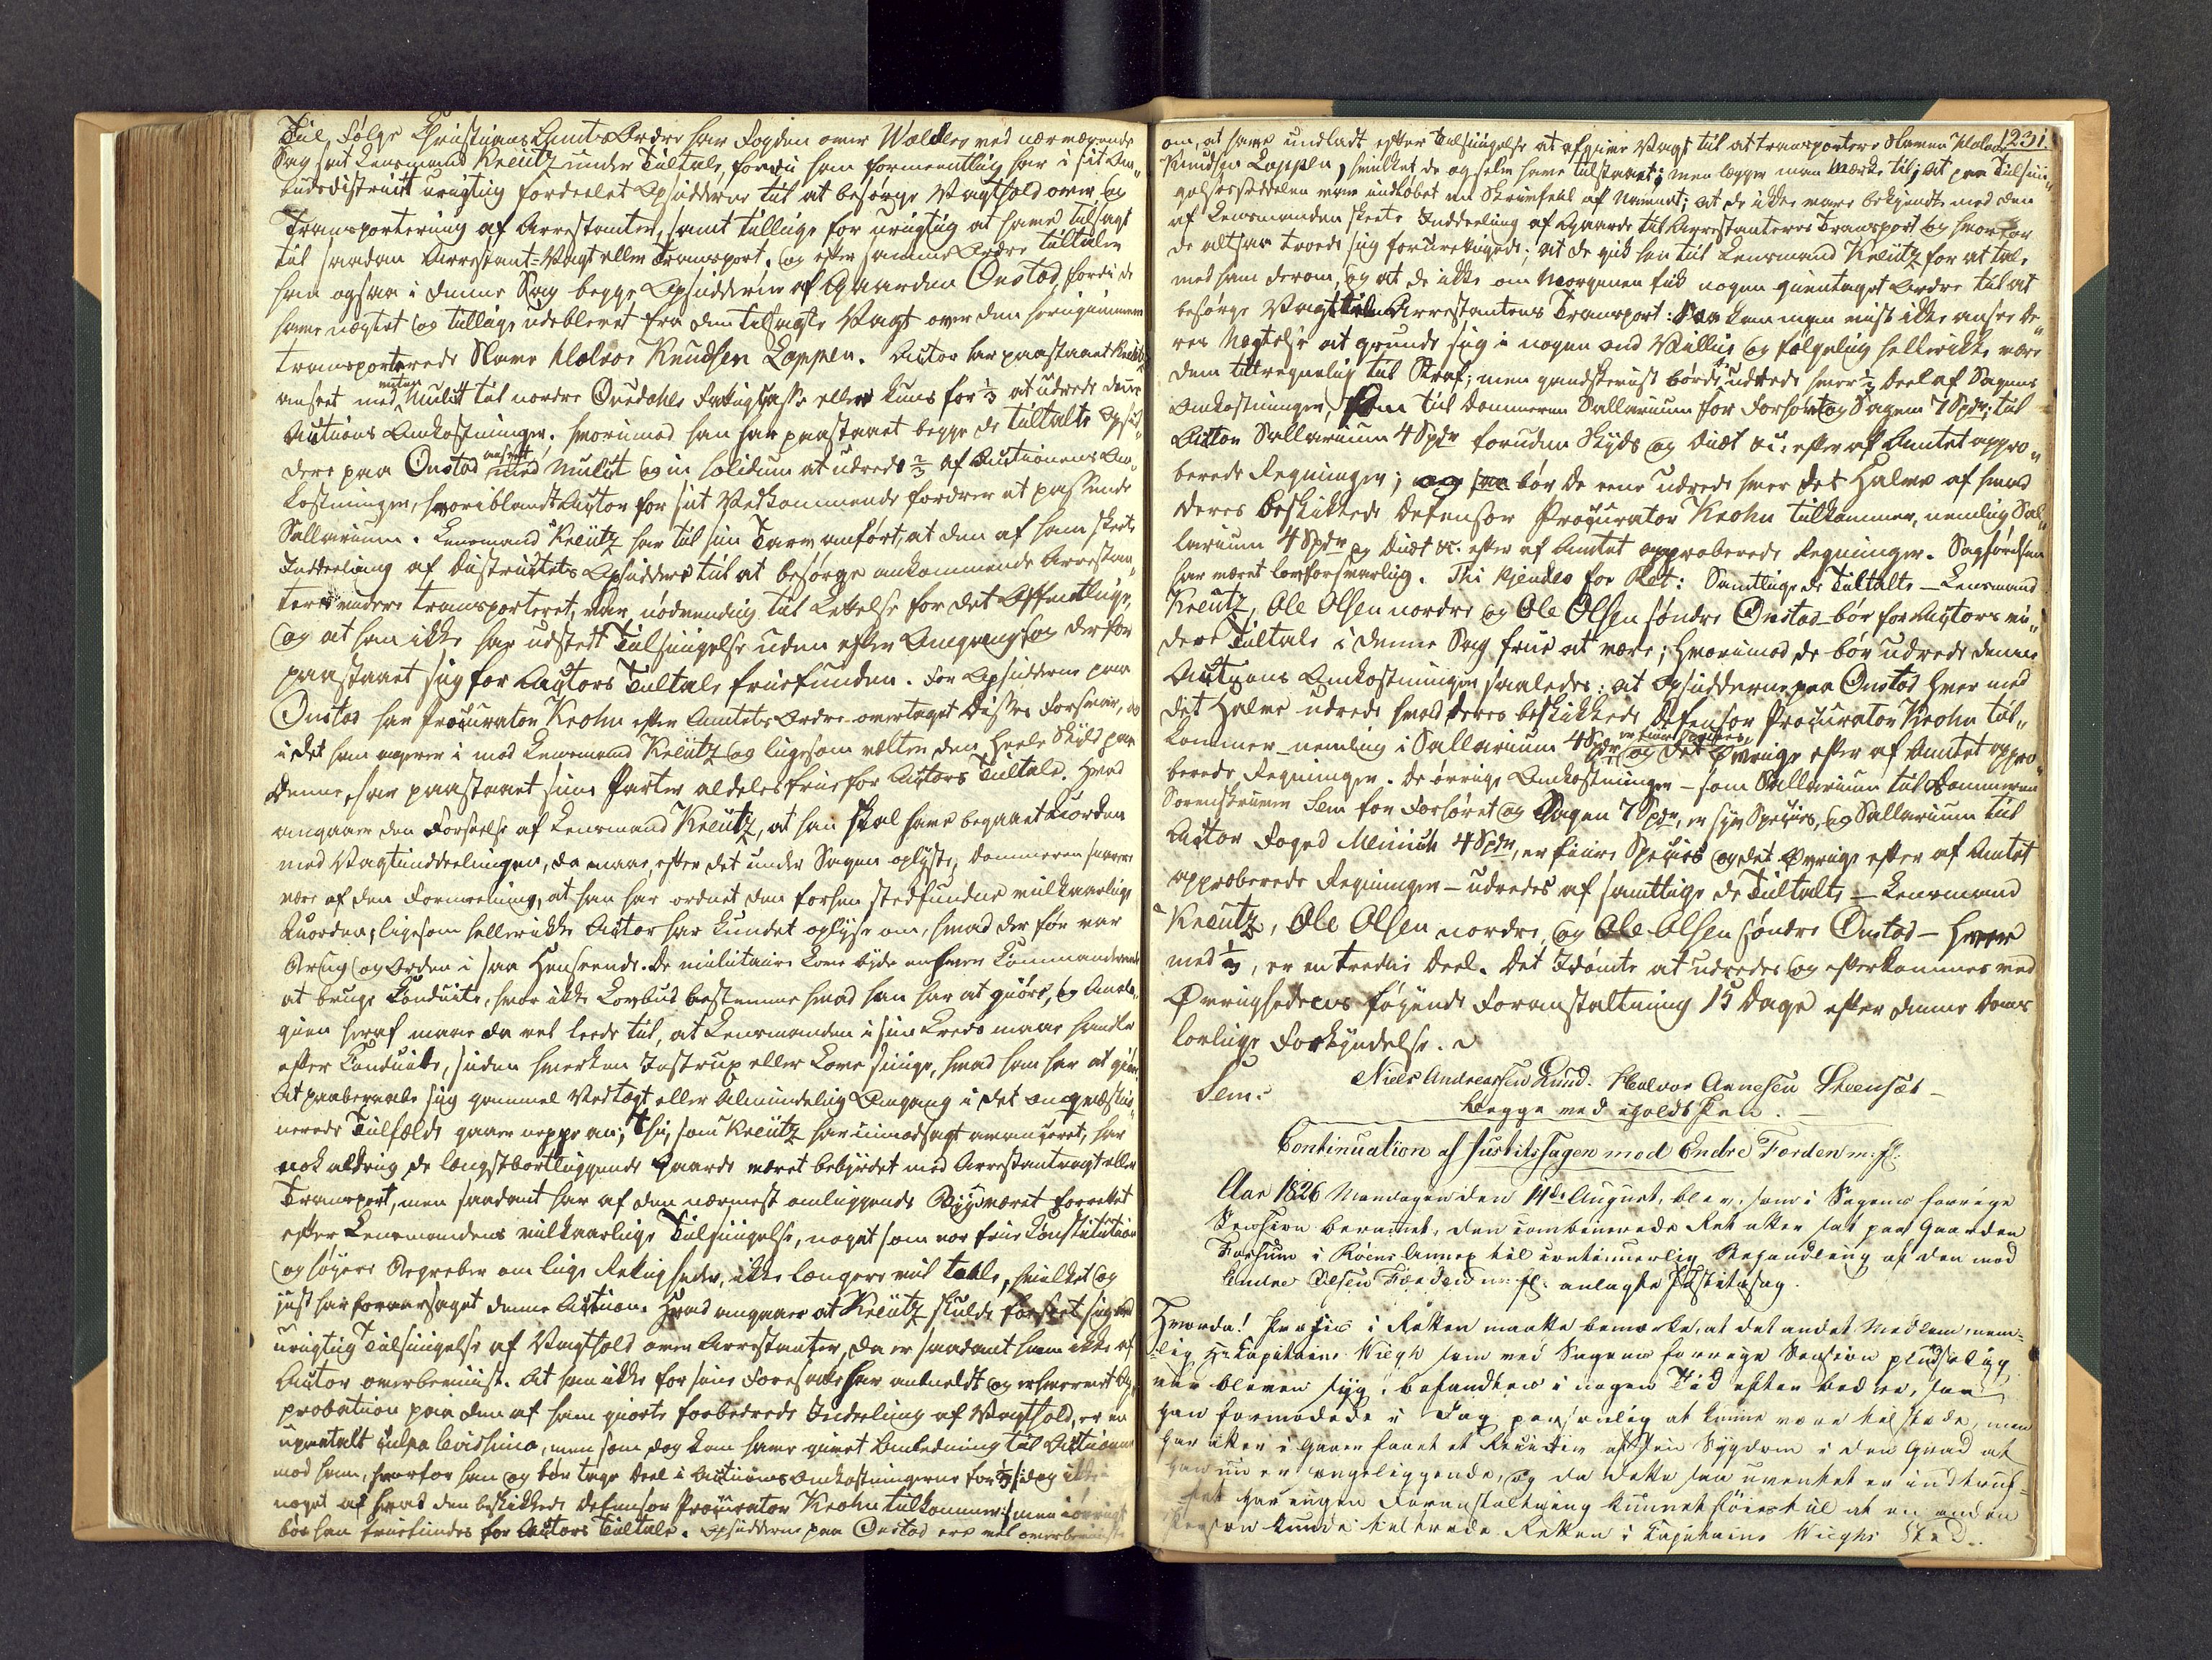 Til Følge Christians Amts Ordre har Fogden over Walders ved nærværende
Sag sat Lensmand Kreütz under Tiltale, fordi han formeentlig har i sit Om„
budsdistrict urigtig fordeelet Opsidderne til at besørge Vagthold over og
Transportering af Arrestanter, samt tillige for urigtig at have tilsagt
til saadan Arrestant-Vagt eller Transport, og efter samme Ordre tiltalen
han ogsaa i denne Sag begge Opsidderne af Gaarden Onstad, fordi de
have nægtet og tillige udeblevet fra den tilsagte Vagt over den herigjennem
transporterede Slave Halvor Knudsen Loppen. Actor har paastaaet Kreütz
anseet med Mulct til nordre Ourdahls Fattigkasse eller kuns for 1/3 at udrede denne
Actions Omkostninger, hvorimod han har paastaaet begge de tiltalte Opsid„
dere paa Onstad anseet med Mulct og in solidum at udrede 2/3 af Actionens Om„
kostninger, hvoriblandt Actor for sit Vedkommende fordrer et passende
Sallarium. Lensmand Kreütz har til sin Tarv anført, at den af ham skeete
Inddeeling af Districtets Opsiddere til at besørge ankommende Arrestan„
teres videre transporteret, var nødvendig til Lettelse for det Offentlige,
og at han ikke har udstedt Tilsiigelse uden efter Omgang og derfor
paastaaet sig for Actors Tiltale friefunden. For Opsidderne paa
Onstad har Procurator Krohn efter Amtets Ordre overtaget Disses Forsvar, og
i det han agerer i mod Lensmand Kreütz og ligesom vælter den heele Skyld paa
denne, har paastaaet sine Parter aldeles frie for Actors Tiltale. Hvad
angaaer den Forseelse af Lensmand Kreütz, at han skal have begaaet Uorden
med Vagtinddeelingen, da maae, efter det under Sagen oplyste, Dommeren snarere
være af den Formeening, at han har ordnet den forhen stedfundne vilkaarlige
Uorden, ligesom hellerikke Actor har kundet oplyse om, hvad der før var
Brug og Orden i saa Henseende. De militaire Love byde enhver Commanderende
at bruge Conduite, hvor ikke Lovbud bestemme hvad han har at gjøre, og Analo„
gien heraf maae da vel lede til, at Lensmanden i sin Kreds maae handle
efter Conduite, siden hverken Instrux eller Love siige, hvad han har at gjøre.
At paaberaabe sig gammel Vedtægt eller Almindelig Omgang i det omqvæstio„
nerede Tilfælde gaaer neppe an; thi, som Kreütz har uimodsagt avanceret, har
nok aldrig de længstbortliggende Gaarde været bebyrdet med Arrestantvagt eller
Transport, men saadant har af den nærmest omliggende Bygd været forrettet
efter Lensmandens vilkaarlige Tilsiigelse, noget som vor frie Constitution
og høyere Begreber om lige Rettigheder, ikke længere vil taale, hvilket og
just har foraarsaget denne Action. Hvad angaaer at Kreütz skulde forseet sig ved
urigtig Tilsiigelse af Vagthold over Arrestanter, da er saadant ham ikke af
Actor overbeviist. At han ikke for sine Foresatte har anmeldt og erhvervet Ap„
probation paa den af ham gjorte forbedrede Inddeeling af Vagthold, er en
upaatalt culpa levissima, men som dog kan have givet Anledning til Actionen
mod ham, hvorfor han og bør tage Deel i Actionsomkostningerne for 1/3 dog ikke i
noget af hvad den beskikkede Defensor Procurator Krohn tilkommer; men iøvrigt
bør han friefindes for Actors Tiltale. Opsidderne paa Onstad ere vel overbeviiste
1231.
om, at have undladt efter Tilsiigelse at afgive Vagt til at transportere Slaven Halvor
Knudsen Loppen, hvilket de ogselv have tilstaaet; men lægger man Mærke til; at paa Tilsii„
gelsesseddelen var indløbet en Skrivfeil af Navnet; at de ikke vare bekjendte med den
af Lensmanden skeete Inddeeling af Gaarde til Arrestanteres Transport og hvorfor
de altsaa troede sig forurettigede; at de gik hen til Lensmand Kreütz for at tale
med ham derom, og at de ikke om Morgenen fik nogen gientaget Ordre til at
besørge Vagt til Arrestantens Transport: Saa kan man vist ikke ansee de„
res Nægtelse at grunde sig i nogen ond Villie og følgelig hellerikke være
dem tilregnelig til Straf; men gandskevist bør de udrede hver 1/3 Deel af Sagens
Omkostninger, som til Dommeren Sallarium for Forhør og Sagen 7 Spdr; til
Actor Sallarium 4 Spdr foruden Skyds og Diæt &c: efter af Amtet appro„
berede Regninger; og bør De eene udrede hver det Halve af hvad
deres beskikkede Defensor Procurator Krohn tilkommer, nemlig Sal„
larium 4 Spdr og Diæt &c. efter af Amtet approberede Regninger. Sagførelsen
har været lovforsvarlig. Thi kjendes for Ret: Samtlige de Tiltalte – Lensmand
Kreütz, Ole Olsen nordre og Ole Olsen søndre Onstad – bør for Actors vi„
dere Tiltale i denne Sag frie at være; hvorimod de bør udrede denne
Actions Omkostninger saaledes: at Opsidderne paa Onstad hver med
det Halve udrede hvad deres beskikkede Defensor Procurator Krohn til„
kommer – nemlig i Sallarium 4 Spdr er fiire Species, og det Øvrige efter af Amtet appro„
berede Regninger. De øvrige Omkostninger – som Sallarium til Dommeren
Sorenskriver Sem for Forhøret og Sagen 7 Spdr, er syv Species, og Sallarium til
Actor Foged Meinich 4 Spdr, er fiire Species og det Øvrige efter af Amtet
approberede Regninger – udredes af samtlige de Tiltalte – Lensmand
Kreütz, Ole Olsen nordre, og Ole Olsen søndre Onstad – hver
med 1/3, er en tredie Deel. Det Idømte at udredes og efterkommes ved
Øvrighedens føyende Foranstaltning 15 Dage efter denne Doms
lovlige Forkyndelse.
Sem. Niels Andreassen Lund. Halvor Arnesen Steensæt –
begge med iholdt Pen. –
Continuation af Justitssagen mod Endre Færden m: fl:
Aar 1826 Mandagen den 14de August, blev, som i Sagens forrige
Session berammet, den combinerede Ret atter sat paa Gaarden
i Annex til continuerlig Behandling af den mod
Endre Olsen Færden m: fl: anlagte Justitssag.
Hvorda! Præses i Retten maatte bemærke, at det andet Medlem, nem-
lig Hr Capitaine Wiegh som ved Sagens forrige Session pludselig
var bleven syg, befandtes i nogen Tid efter bedre, saa
han formodede i Dag personlig at kunne være tilstæde, men
har atter i Gaar faaet et Recidiv af sin Sygdom i den Grad at
han nu er sengeliggende, og da dette saa uventet er indtruf-
fet har ingen Foranstaltning kunnet føies til at en anden
Person kunde tiltræde Retten i Capitaine Wieghs Sted.